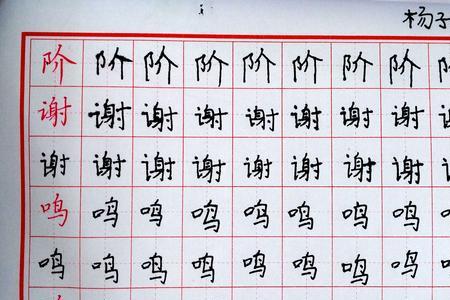 杨子
阶阶阶阶阶阶阶阶阶
谢谢谢谢谢谢谢谢谢
谢谢谢谢谢谢谢谢谢
鸣鸣鸣鸣鸣鸣鸣鸣鸣
鸣鸣鸣鸣鸣鸣鸣鸣鸣